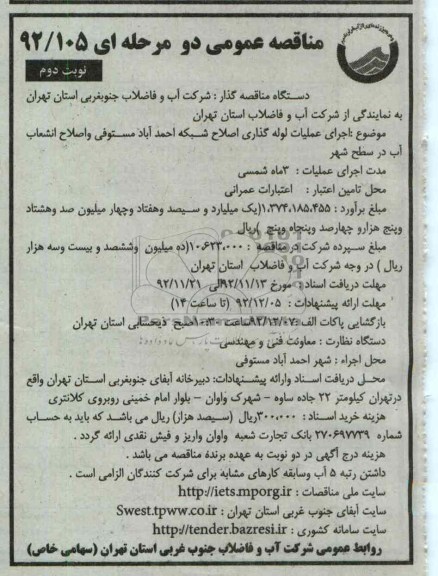 مناقصه عمومی دو مرحله ای ۹۲/۱۰۵
نوبت دوم
دستگاه مناقصه گذار : شرکت آب و فاضلاب جنوبغربی استان تهران
به نمایندگی از شرکت آب و فاضلاب استان تهران
موضوع :اجرای عملیات لوله گذاری اصلاح شبکه احمد آباد مستوفی واصلاح انشعاب
آب در سطح شهر
مدت اجرای عملیات : ۳ماه شمسی
محل تامین اعتبار : اعتبارات عمرانی
مبلغ برآورد : ۱,۳۷۴,۱۸۵,۴۵۵(یک میلیارد و سیصد وهفتاد وچهار میلیون صد وهشتاد
وپنج هزارو چهارصد وپنجاه وپنج )ریال
مبلغ سپرده شرکت در مناقصه : ۱۰,۶۲۳,۰۰۰(ده میلیون وششصد و بیست وسه هزار
ریال ) در وجه شرکت آب و فاضلاب استان تهران
مهلت دریافت اسناد : مورخ ۹۲/۱۱/۱۳الی ۹۲/۱۱/۲۱
مهلت ارائه پیشنهادات : ۹۲/۱۲/۰۵ (تا ساعت ۱۴)
بازگشایی پاکات الف :۹۲/۱۲/۰۷ساعت ۱۰:۳۰صبح ذیحسابی استان تهران
دستگاه نظارت : معاونت فنی و مهندسی
محل اجراء : شهر احمد آباد مستوفی
محل دریافت اسناد وارائه پیشنهادات: دبیرخانه آبفای جنوبغربی استان تهران واقع
درتهران کیلومتر ۲۲ جاده ساوه – شهرک واوان – بلوار امام خمینی روبروی کلانتری
هزینه خرید اسناد : ۳۰۰,۰۰۰ریال (سیصد هزار) ریال می باشد که باید به حساب
شماره ۲۷۰۶۹۷۷۳۹ بانک تجارت شعبه واوان واریز و فیش نقدی ارائه گردد .
هزینه درج آگهی در دو نوبت به عهده برندهٔ مناقصه می باشد .
داشتن رتبه ۵ آب وسابقه کارهای مشابه برای شرکت کنندگان الزامی است .
سایت ملی مناقصات : http://iets.mporg.ir
سایت آبفای جنوب غربی استان تهران : Swest.tpww.co.ir
سایت سامانه کشوری : http://tender.bazresi.ir
روابط عمومی شرکت آب و فاضلاب جنوب غربی استان تهران (سهامی خاص)